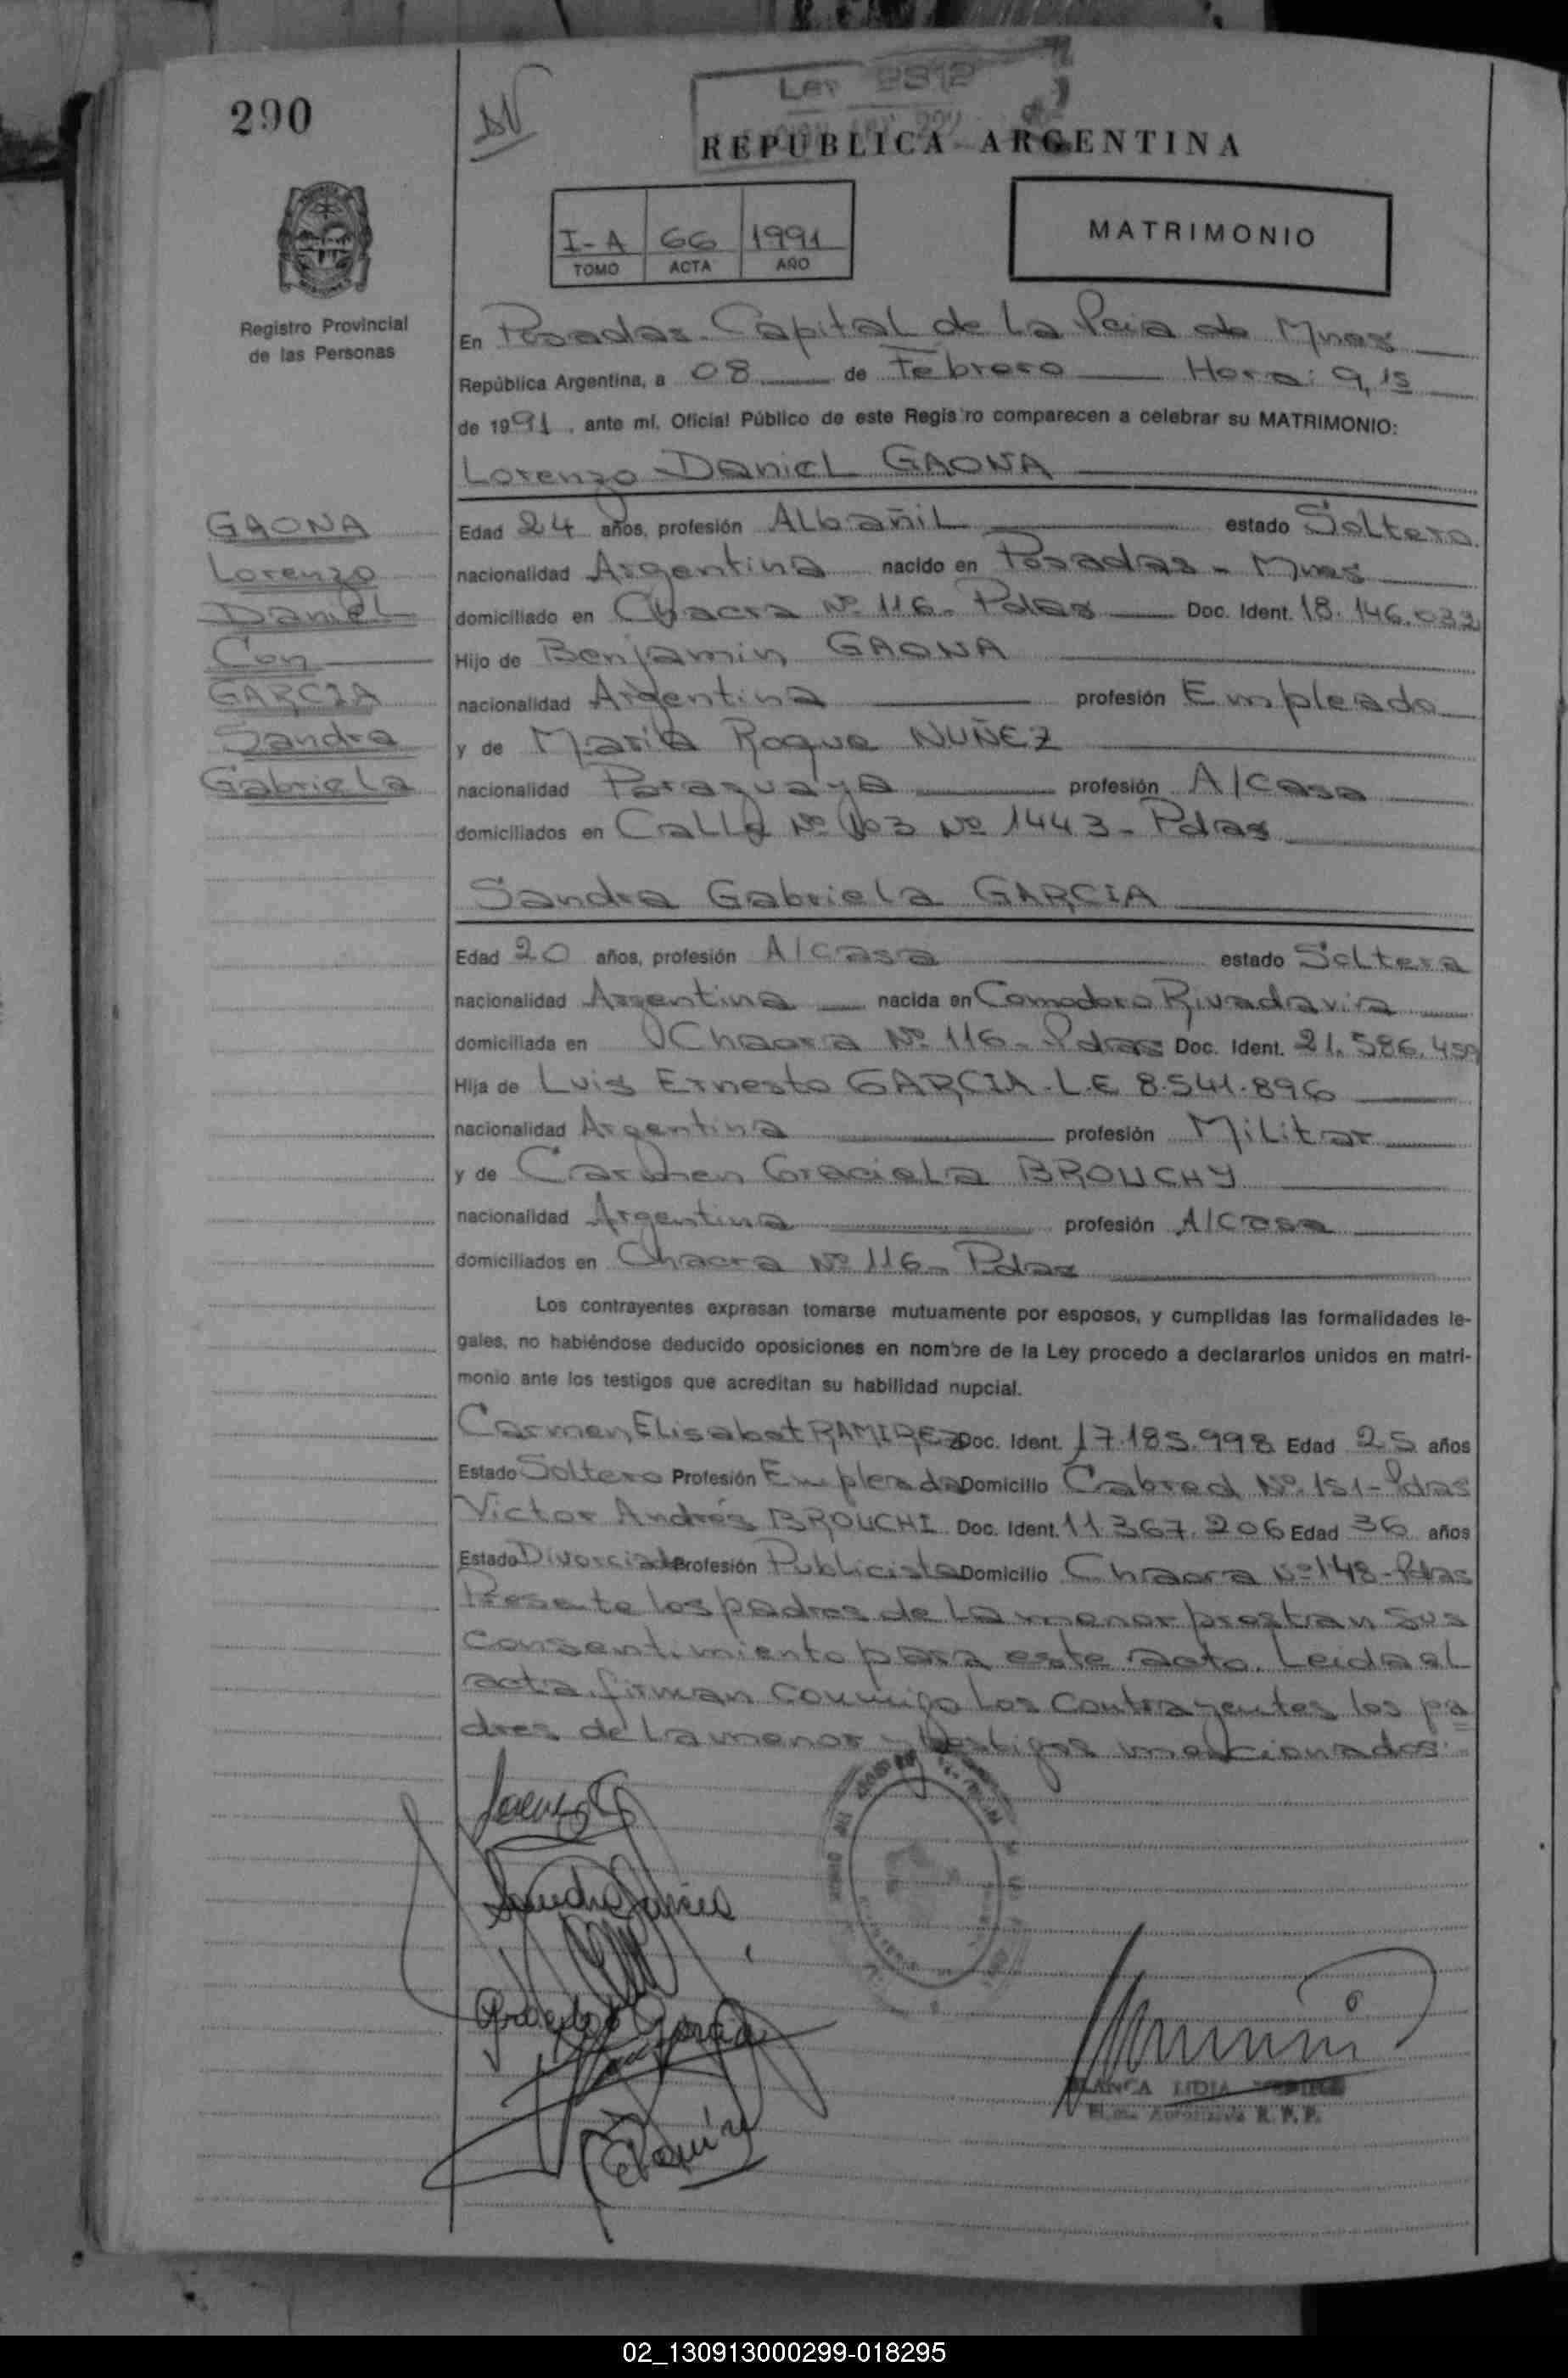 Ley 2312
290
REPUBLICA ARGENTINA
I-A 66 1991
TOMO ACTA AÑO
MATRIMONIO
Registro Provincial
de las Personas
En Posadas. Capital de la Pcia de Mnes
República Argentina, a 08 de Febrero Hora: 9,15
de 1991, ante mí, Oficial Público de este Registro comparecen a celebrar su MATRIMONIO:
Lorenzo Daniel GAONA
GAONA
Lorenzo
Daniel
Con
GARCIA
Sandra
Gabriela
Edad 24 años, profesión Albañil estado Soltero.
nacionalidad Argentina nacido en Posadas - Mnes
domiciliado en Chacra Nº 116. Pdas Doc. Ident. 18.146.032
Hijo de Benjamin GAONA
nacionalidad Argentina profesión Empleado
y de Maria Roque NUÑEZ
nacionalidad Paraguaya profesión A/casa
domiciliados en Calle Nº 103 Nº 1443 - Pdas
Sandra Gabriela GARCIA
Edad 20 años, profesión A/casa estado Soltera
nacionalidad Argentina nacida en Comodoro Rivadavia
domiciliada en Chacra Nº 116 - Pdas Doc. Ident. 21.586.459
Hija de Luis Ernesto GARCIA. L.E 8.541.896
nacionalidad Argentina profesión Militar
y de Carmen Graciela BROUCHY
nacionalidad Argentina profesión A/casa
domiciliados en Chacra Nº 116 - Pdas
Los contrayentes expresan tomarse mutuamente por esposos, y cumplidas las formalidades le-
gales, no habiéndose deducido oposiciones en nombre de la Ley procedo a declararlos unidos en matri-
monio ante los testigos que acreditan su habilidad nupcial.
Carmen Elisabet RAMIREZ Doc. Ident. 17.185.998 Edad 25 años
Estado Soltero Profesión Empleada Domicilio Cabred Nº 151 - Pdas
Victor Andrés BROUCHI Doc. Ident. 11.367.206 Edad 36 años
Estado Divorciado Profesión Publicista Domicilio Chacra Nº 148 - Pdas
Presente los padres de la menor prestan sus
consentimiento para este acto. Leida el
acta, firman conmigo los contrayentes los pa
dres de la menor y testigos mencionados.
Sandra Garcia
BLANCA LIDIA
R. P. P.
02_130913000299-018295